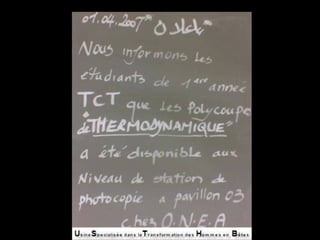 01.04.2007
Nous informons les
étudiants de 1ère année
TCT que les Polycoupe
de "THERMODYNAMIQUE"
a été disponible aux
Niveau de station de
photocopie a pavillon 03
chez O.N.E.A
Usine Specialisée dans la Transformation des Hommes en Bêtes